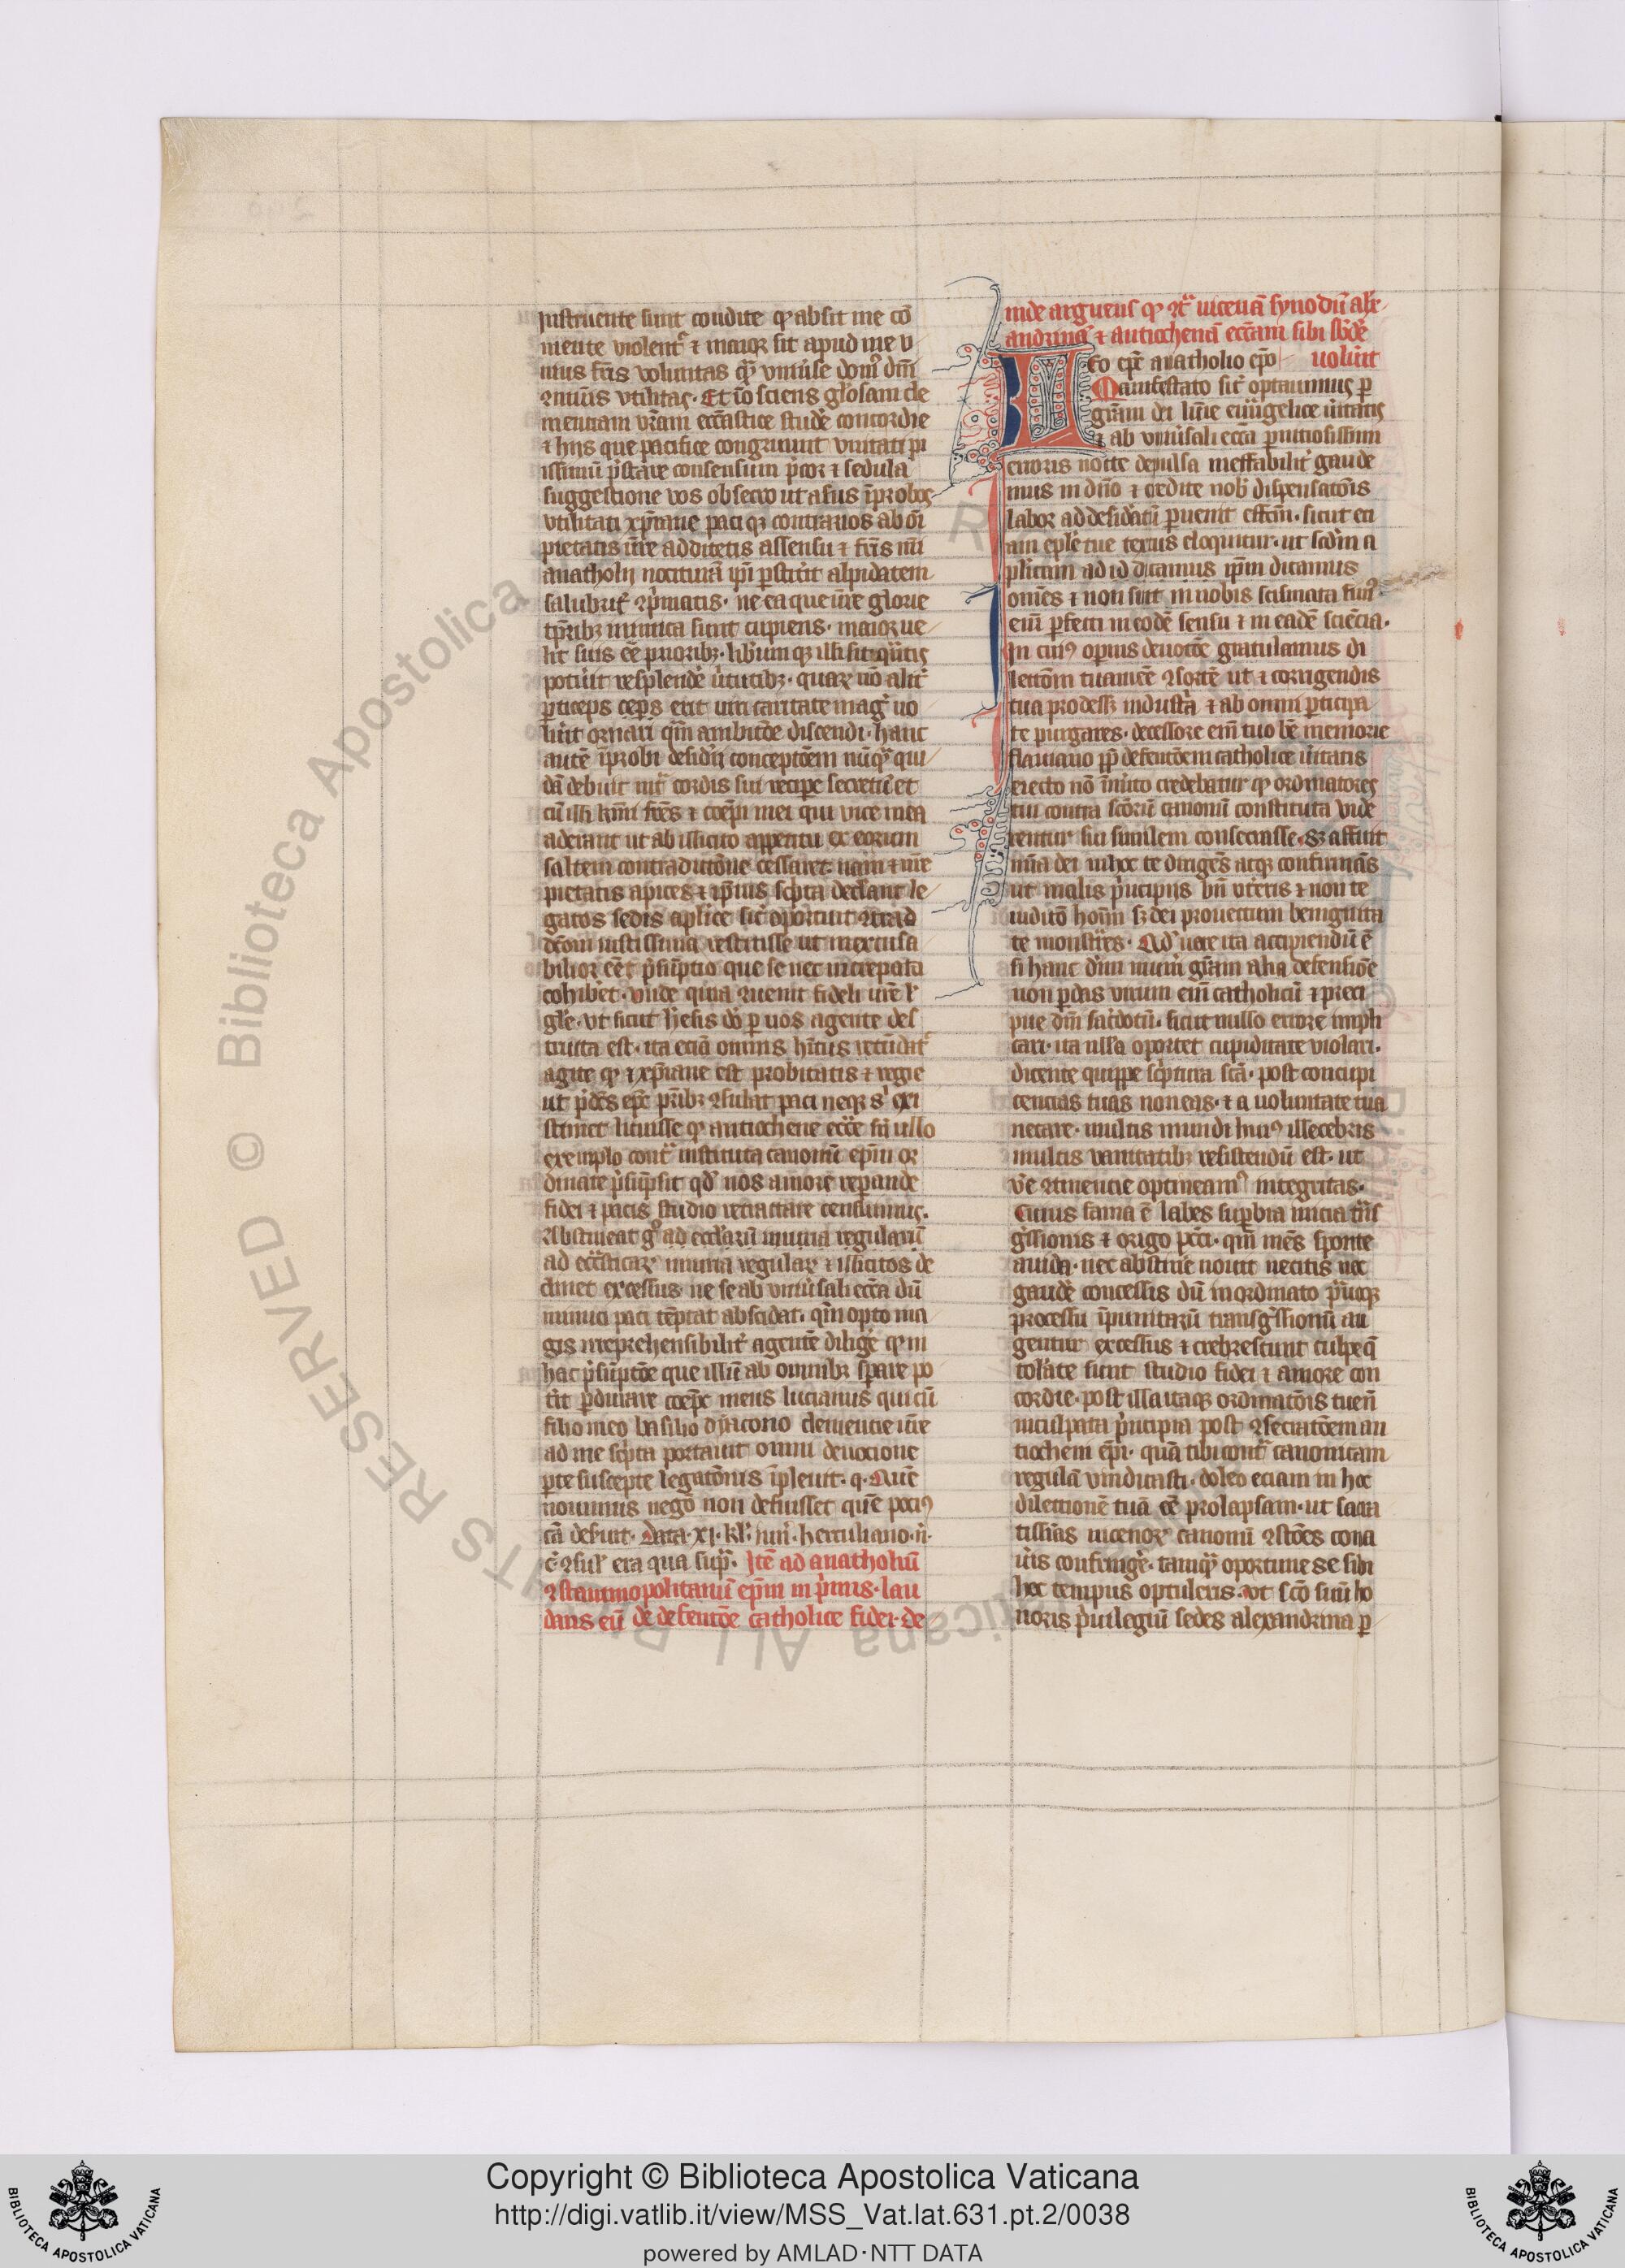 instruente sunt condite qͥ absit me cō
niente violent᷑ ⁊ maioꝝ sit apud me v
nius fr̄is voluntas qͣ᷑ vniu̾se dom⁹ dn̄i
ꝯmunis vtilitas. Et iō sciens gl̾osam cle
mentiam vr̄am eccl̄astice stude᷑ concordie
⁊ hijs que pacifice congruunt vnitati pi
issimū p̾stare consensum p̾cor ⁊ sedula
suggestione vos obsecro ut a suis īprobos
vtilitati xp̄iane paciqꝫ contrarios ab oī
pietatis vr̄e additetis assensu ⁊ fr̄is mī
anatholij nocituraꝫ
salubrit᷑ ꝯp̾matis. ne ea que vr̄e glorie
tp̄ribꝫ inimica sunt cupiens. maior ue
lit suis eē̄ prioribꝫ. lib̾umqꝫ illi sit q̄ntis
potu̾it resplende᷑ v̾tutibꝫ. quaꝝ nō alit᷑
ꝑticeps erit um caritate mag̾ uo
lu̾it ornari qͣm ambitōe discendi. hanc
autē īprobi desid̾ij conceptōem nūqͣ qui
dā debuit int᷑ cordis sui recipe᷑ secretū et
cū illi km̄i fr̄es ⁊ coep̄i mei qui vice mea
aderant ut ab illicito appetitu ex eorum
saltem contradictōne cessaret. nam ⁊ vr̄e
pietatis apices ⁊ ip̄ius sc̾pta declarāt le
gatos sedis aplīce sic̄ oportuit ꝯtrad
cōni iustissima restitisse ut inexcusa
bilior eēt p̾sūptio que se nec increpata
cohibet. vnde quia ꝯuenit fidei vr̄e ⁊
glīe. vt sicut h̾esis dō ꝑ uos agente des
tructa est. ita eciā omnis hītus retūdat᷑
agite qͥ ⁊ xp̄iane est probitatis ⁊ regie
ut p̾dc̄s ep̄c pr̄ibꝫ ꝯsulat paci neqꝫ s̾ exi
stimet licuisse qͥ antiochene eccl̄e sn̄ ullo
exemplo cont̾ instituta canonū ep̄m or
dinare p̾sūpsit qd̾ nos amore reparande
fidei ⁊ pacis studio retractare censuimus.
Abstineat g̾ ad ecclāꝝ iniuria regulariū
ad eccl̄sticaꝝ iniuria regulaꝝ ⁊ illicitos de
clinet excessus. ne se ab vniu̾sali eccl̄a dū
inimica paci tēptat abscidat. qͣm opto ma
gis irreprehensibilit᷑ agentē dilige᷑ qͣ in
hac p̾sūptōe que illū ab omnibꝫ sꝑare po
t̾it ꝑdurare coep̄c meus lucianus qui cū
filio meo basilio dyacono clemencie vr̄e
ad me sc̾pta portauit omni deuocione
ꝑte suscepte legatōnis īpleuit. q. Quē
nouimus nego non defuisset quē poci⁹
cā defuit. Data. xj. kl̄. iun̄. herculiano. v̄.
c̄. ꝯsul̾ era qua supͣ. Itē ad anatholiū
ꝯstantinopolitanū ep̄m in p̾mis. lau
dans eū de defentōe catholice fidei. de
inde arguens qͥ ꝯt̾ nicenā synodū alex
andrinā ⁊ antiochenā eccl̄am sibi sb̾de᷑
Leo ep̄c anatholio ep̄o uolu̾it
Manifestato sic̄ optauimus ꝑ
gr̄am dei lum̄e eu̾ngelice v̾itatis
⁊ ab vniu̾sali eccl̄a ꝑniciosissimi
erroris nocte depulsa ineffabilit᷑ gaude
mus in dn̄o ⁊ credite nob̾ dispensatōis
labor ad desid̾atū ꝑuenit effectū. sicut eti
am ep̄le tue textus eloquitur. ut scd̄m a
plīcum ad id dicamus ip̄m dicamus
omēs ⁊ non sint in nobis scismata sim⁹
eni᷑ ꝑfecti in eodē sensu ⁊ in eadē sciēcia.
In cui⁹ operis deuocōe gratulamus di
lectōm tuam eē̄ ꝯsortē ut ⁊ corrigendis
tua prodess̄ industr̾ia ⁊ ab omni ꝑticipa
te purgares. decessore eni᷑ tuo bē memorie
flauiano ꝓp̄ defentōem catholice v̾itatis
eiecto nō īmito credebatur qͥ ordinatores
tui contra sc̄orū canonū constituta vide
rentur sui similem consecrasse. sꝫ affuit
mīa dei in hoc te dirigēs atqꝫ confirmās
ut malis p̾ncipijs bn̄ vteris ⁊ non te
iudicō hoīm sꝫ dei prouectum benignita
te monstrēs. Qd̾ uere ita accipiendū ē
si hanc dīni mun̄is gr̄am alia defensiōe
non ꝑdas virum eni᷑ catholicū ⁊ preci
pue dn̄i sac̾dotū. sicut nullo errore inpli
cari. ita ulla oportet cupiditate violari.
dicente quippe sc̾ptura sc̄ā. post concupi
cencias tuas non eas. ⁊ a uoluntate tua
uetare. multis mundi hui⁹ illecebris
multis vanitatibꝫ resistendū est. ut
v̾e ꝯtinencie optineam⁹ integritas.
Cuius sama ē labes suꝑbia inicia tr̄ns
g̾ssionis ⁊ origo pcc̄i. qm̄ mēs sponte
auida. nec abstine᷑ nouit uetitis nec
gaude᷑ concessis dū inordinato p̾uoqꝫ
processu īpunitarū transg̾ssionū au
gentur excessus ⁊ crebrescunt culpe q̄
tol̾ate sunt studio fidei ⁊ amore con
cordie. post illa itaqꝫ ordinatōis tue n̄
inculpata p̾ncipia post ꝯsecratōem an
tiocheni ep̄i. quā tibi cont̾ canonicam
regulā vindicasti. doleo eciam in hoc
dilectionē tuā eē̄ prolapsam. ut sacra
tissīas nicenoꝝ canonū ꝯstōes cona
r̾is confringe᷑. tamqͣ oportune se tibi
hoc tempus optulerit. vt sc̄o suū ho
noris p̾uilegiū sedes alexandrina ꝑ
Copyright © Biblioteca Apostolica Vaticana
http://digi.vatlib.it/view/MSS_Vat.lat.631.pt.2/0038
powered by AMLAD·NTT DATA
BIBLIOTECA APOSTOLICA VATICANA
BIBLIOTECA APOSTOLICA VATICANA
© Biblioteca Apostolica Vaticana ALL RIGHTS RESERVED